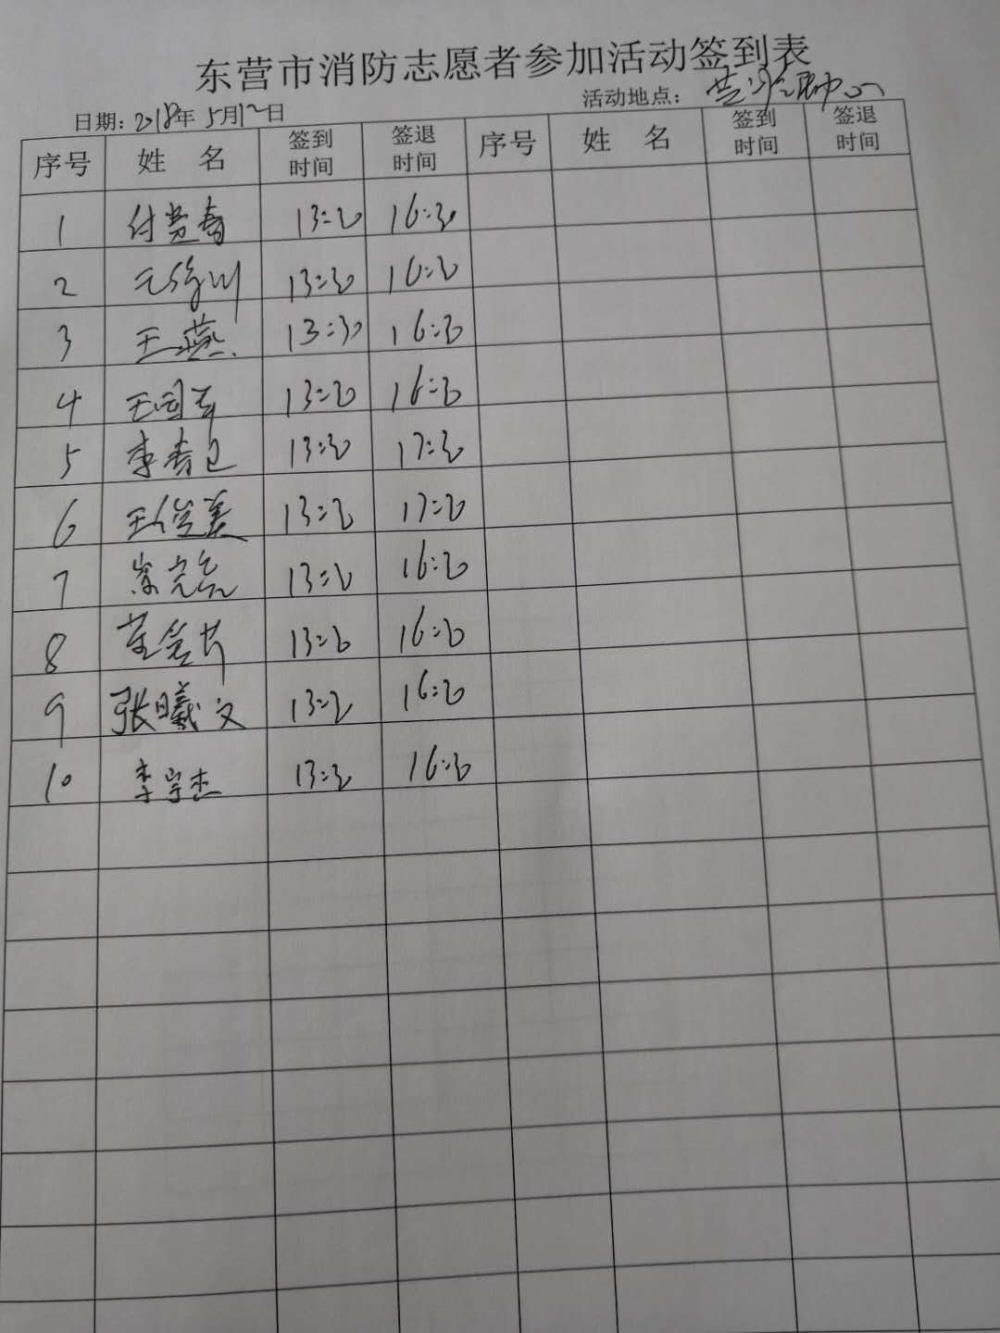 东营市消防志愿者参加活动签到表
日期：2018年5月12日 活动地点：
序号 姓 名 签到时间 签退时间 序号 姓 名 签到时间 签退时间
1 13:30 16:30
2 13:30 16:30
3 王燕 13:30 16:30
4 13:30 16:30
5 李春卫 13:30 17:30
6 王俊美 13:30 17:30
7 13:30 16:30
8 13:30 16:30
9 张曦文 13:30 16:30
10 李宇杰 13:30 16:30